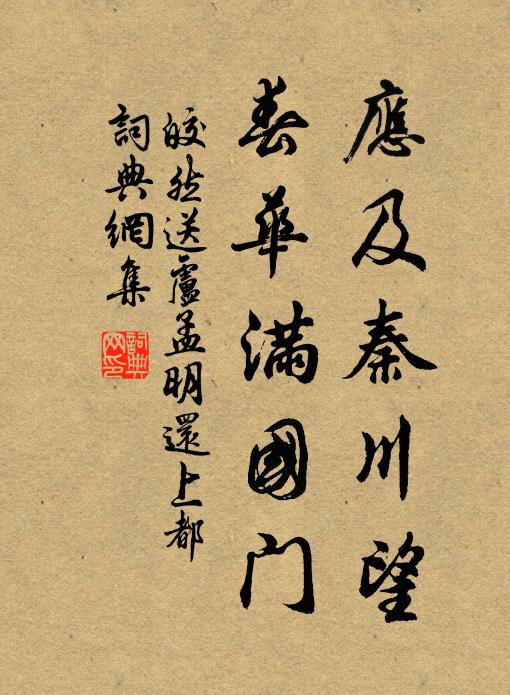 應及秦川望
春華滿國门
皎然送盧孟明還上都
詞典網集
詞典网印